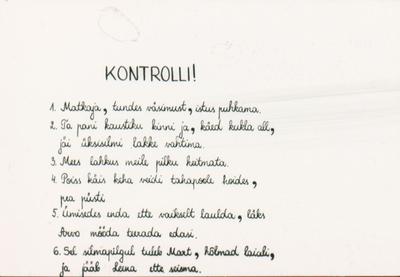 KONTROLLI!
1. Matkaja, tundes väsimust, istus puhkama.
2. Ta pani kaustiku kinni ja, käed kukla all,
jäi üksisilmi lakke vahtima.
3. Mees lahkus meile pilku heitmata.
4. Poiss käis keha veidi tahapoole hoides,
pea püsti
5. Ümisedes enda ette vaikselt laulda, läks
Arvo mööda terada edasi.
6. Sel silmapilgul tuleb Mart, hõlmad laiali,
ja jääb Leena ette seisma.